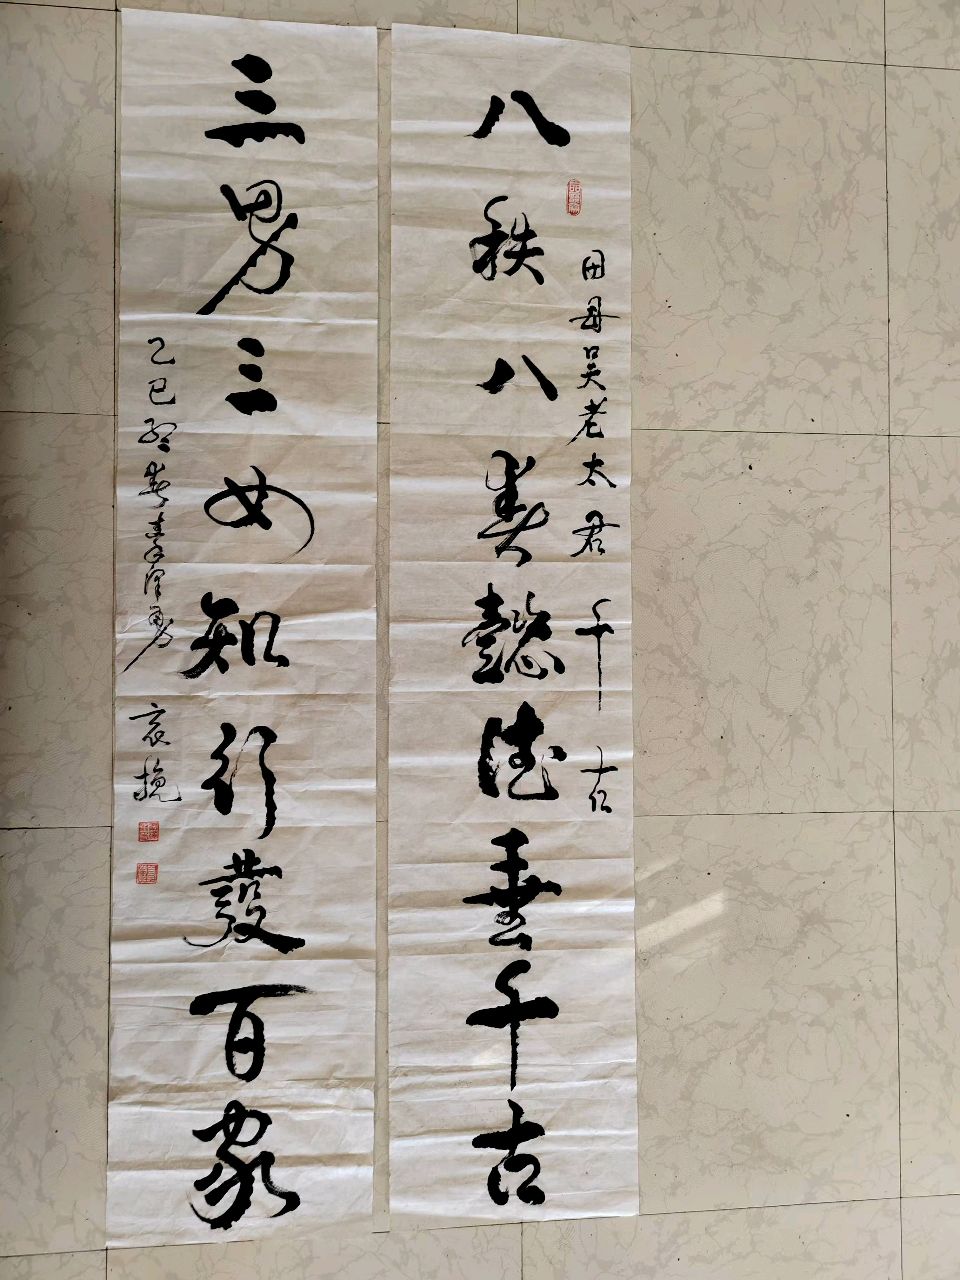 田母吴老太君 千古
八秩八懿德垂千古
三男三女知行發百家
乙巳春泽勇 哀挽